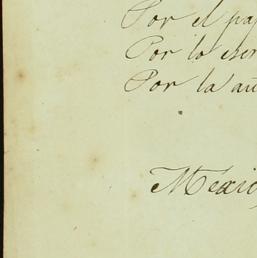 Por el pa
Por lo escri
Por la au
Mexico,